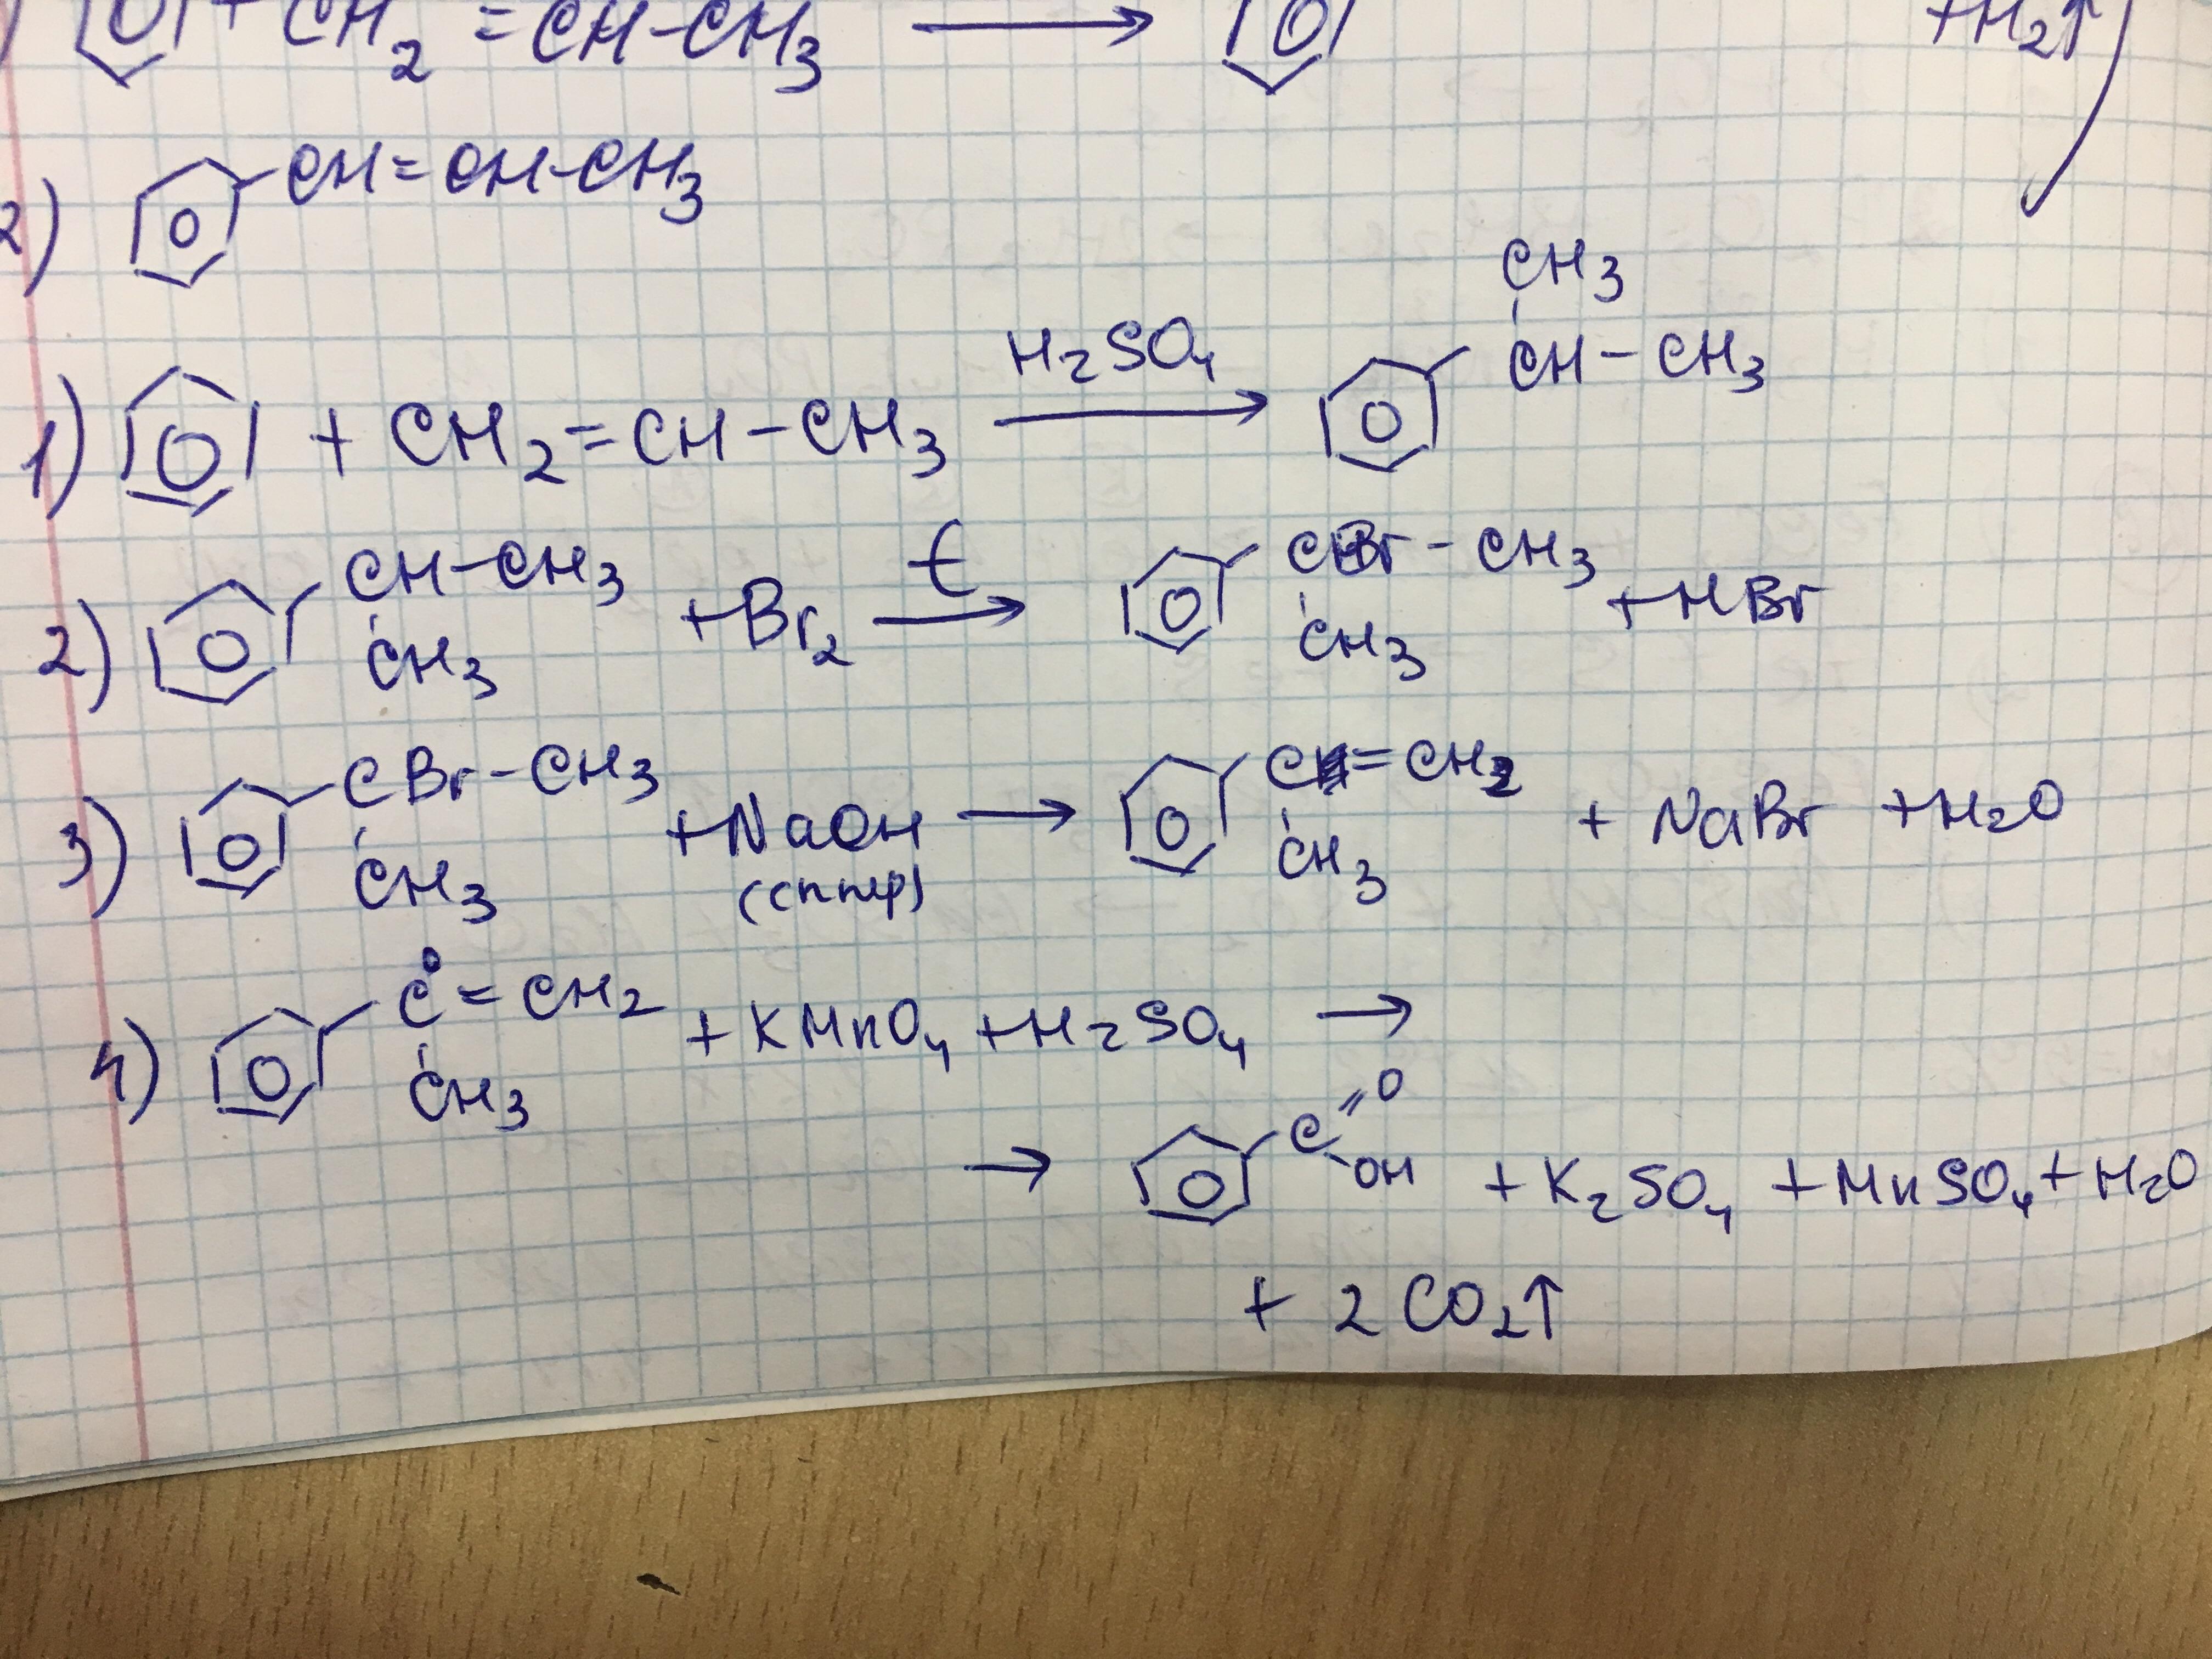 + CH2 = CH-CH3 → + H2↑
2) CH=CH-CH3
1) + CH2=CH-CH3 H2SO4 → CH-CH3 CH3
2) CH-CH3 CH3 + Br2 t → CBr-CH3 CH3 + HBr
3) CBr-CH3 CH3 + NaOH (спирт) → C=CH2 CH3 + NaBr + H2O
4) C=CH2 CH3 + KMnO4 + H2SO4 →
→ C=O OH + K2SO4 + MnSO4 + H2O
+ 2CO2↑